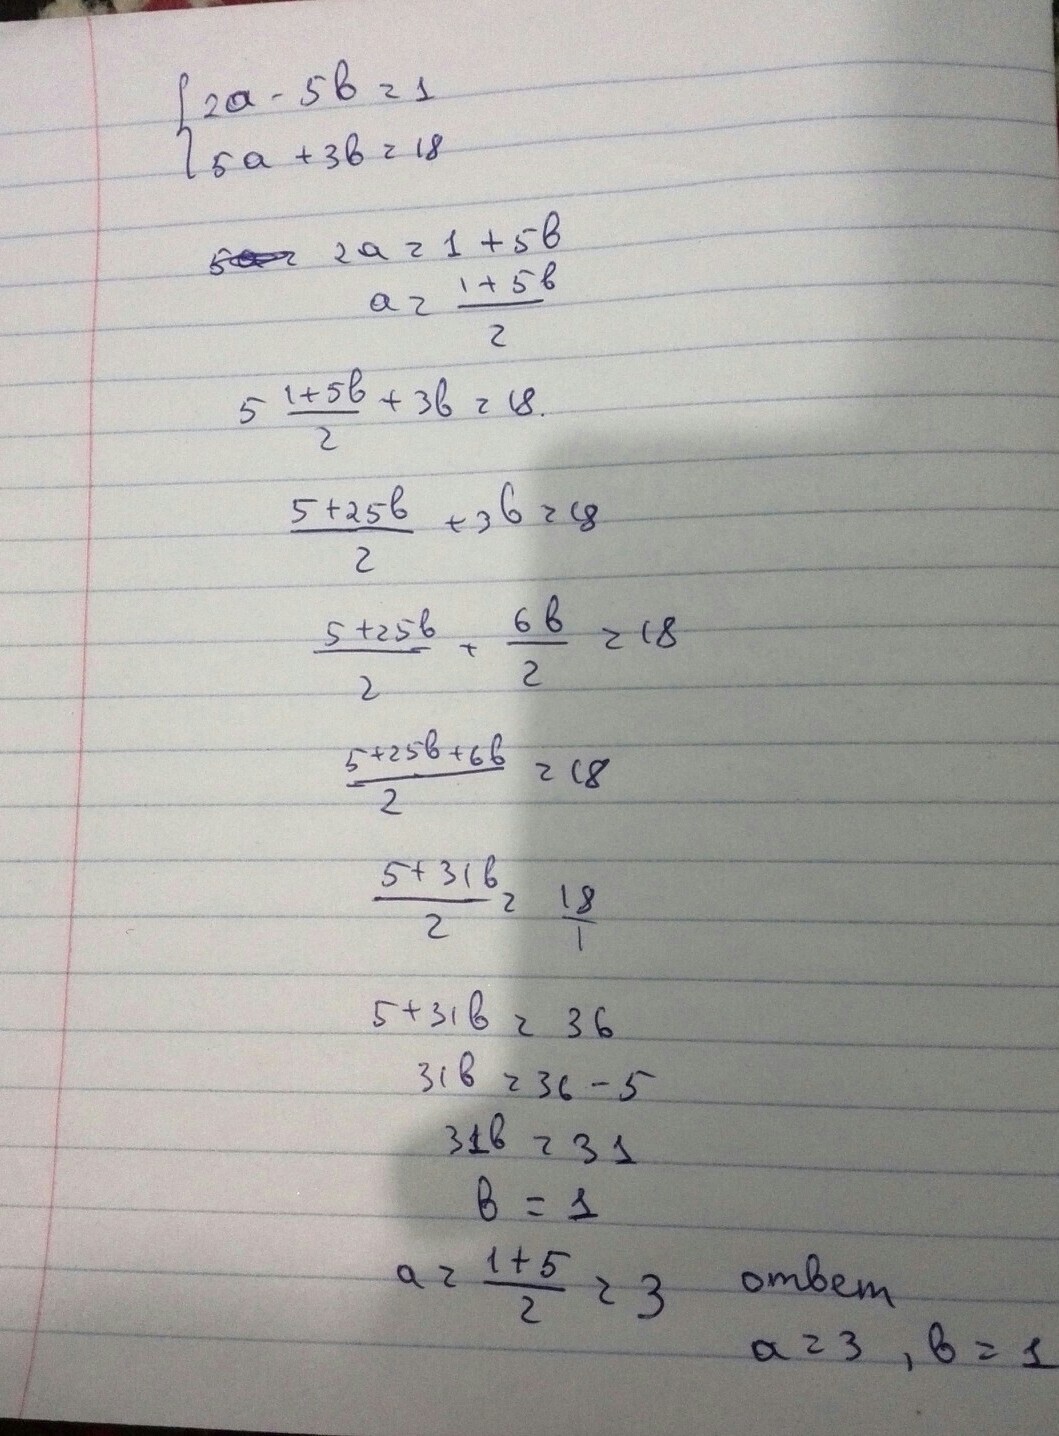 2a - 5b = 1
5a + 3b = 18
2a = 1 + 5b
a = (1 + 5b)/2
5 (1+5b)/2 + 3b = 18.
(5+25b)/2 + 3b = 18
(5+25b)/2 + 6b/2 = 18
(5+25b+6b)/2 = 18
(5+31b)/2 = 18/1
5+31b = 36
31b = 36 - 5
31b = 31
b = 1
a = (1+5)/2 = 3 ответ
a = 3 , b = 1